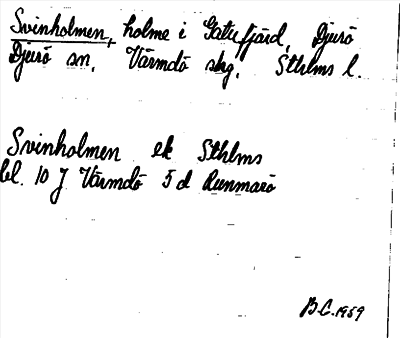 Svinholmen, holme i Gatufjärd, Djurö
Djurö sn, Värmdö skg. Sthlms l.
Svinholmen ek Sthlms
bl. 10 J Värmdö 5 d Runmarö
B.C. 1959